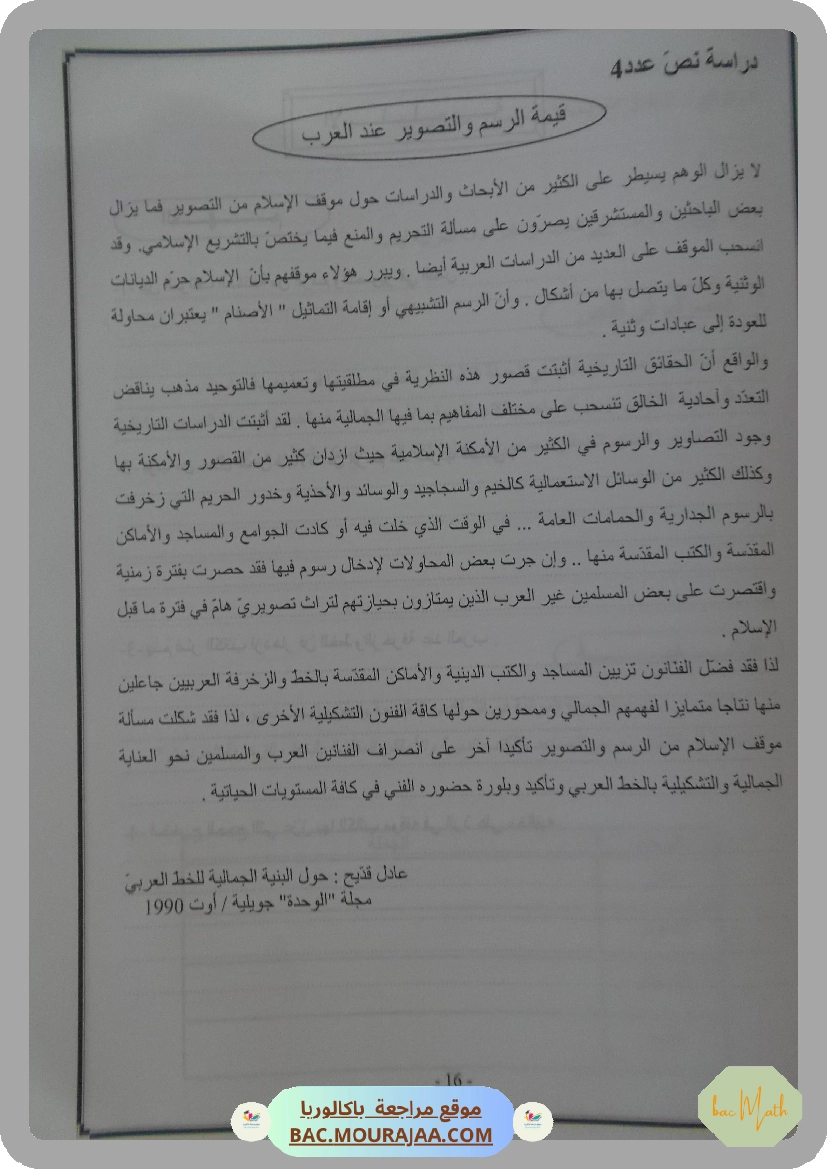 دراسة نصّ عدد4
قيمة الرسم والتصوير عند العرب
لا يزال الوهم يسيطر على الكثير من الأبحاث والدراسات حول موقف الإسلام من التصوير فما يزال
بعض الباحثين والمستشرقين يصرّون على مسألة التحريم والمنع فيما يختصّ بالتشريع الإسلامي. وقد
انسحب الموقف على العديد من الدراسات العربية أيضا . ويبرر هؤلاء موقفهم بأنّ الإسلام حرّم الديانات
الوثنية وكلّ ما يتصل بها من أشكال . وأنّ الرسم التشبيهي أو إقامة التماثيل " الأصنام " يعتبران محاولة
للعودة إلى عبادات وثنية .
والواقع أنّ الحقائق التاريخية أثبتت قصور هذه النظرية في مطلقيتها وتعميمها فالتوحيد مذهب يناقض
التعدّد وأحادية الخالق تنسحب على مختلف المفاهيم بما فيها الجمالية منها . لقد أثبتت الدراسات التاريخية
وجود التصاوير والرسوم في الكثير من الأمكنة الإسلامية حيث ازدان كثير من القصور والأمكنة بها
وكذلك الكثير من الوسائل الاستعمالية كالخيم والسجاجيد والوسائد والأحذية وخدور الحريم التي زخرفت
بالرسوم الجدارية والحمامات العامة ... في الوقت الذي خلت فيه أو كادت الجوامع والمساجد والأماكن
المقدّسة والكتب المقدّسة منها .. وإن جرت بعض المحاولات لإدخال رسوم فيها فقد حصرت بفترة زمنية
واقتصرت على بعض المسلمين غير العرب الذين يمتازون بحيازتهم لتراث تصويريّ هامّ في فترة ما قبل
الإسلام .
لذا فقد فضّل الفنّانون تزيين المساجد والكتب الدينية والأماكن المقدّسة بالخطّ والزخرفة العربيين جاعلين
منها نتاجا متمايزا لفهمهم الجمالي وممحورين حولها كافة الفنون التشكيلية الأخرى ، لذا فقد شكلت مسألة
موقف الإسلام من الرسم والتصوير تأكيدا آخر على انصراف الفنانين العرب والمسلمين نحو العناية
الجمالية والتشكيلية بالخطّ العربي وتأكيد وبلورة حضوره الفني في كافة المستويات الحياتية .
عادل قدّيح : حول البنية الجمالية للخطّ العربيّ
مجلة "الوحدة" جويلية / أوت 1990
- 16 -
موقع مراجعة باكالوريا
BAC.MOURAJAA.COM
bac Math